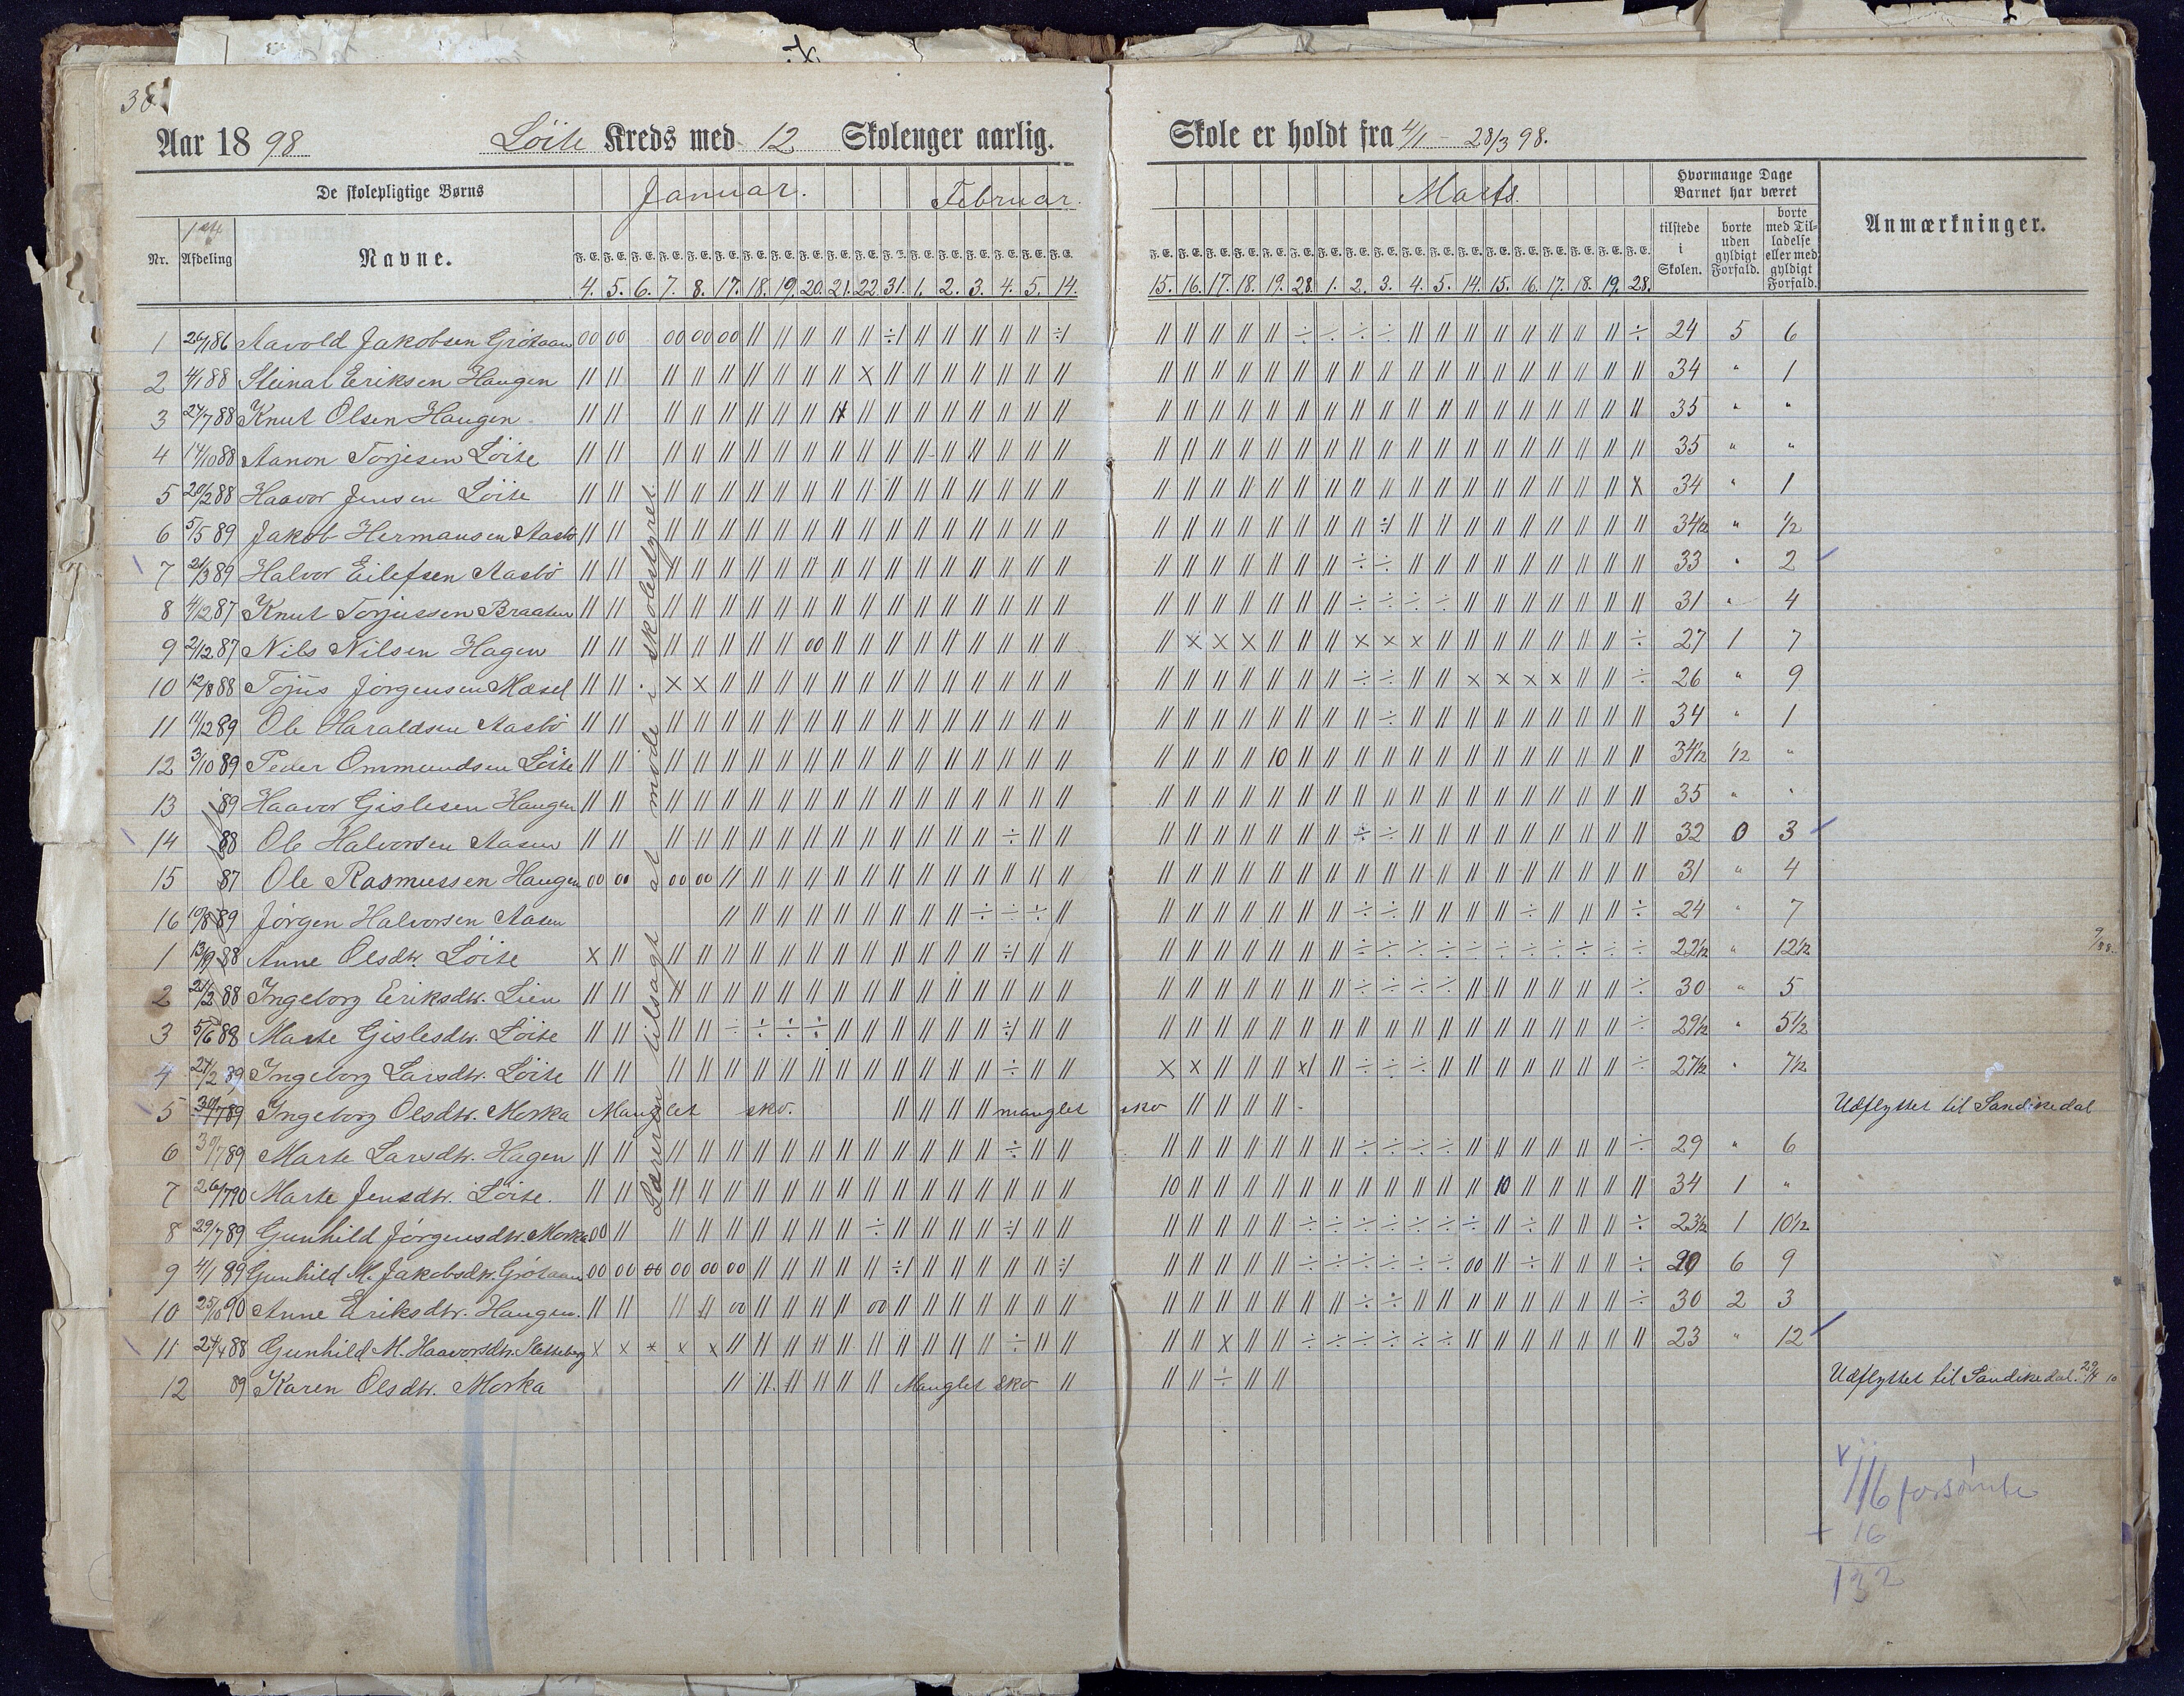 38
Aar 1898 Löite Kreds med 12 Skolenger aarlig. Skole er holdt fra 4/1 - 28/3 98.
De skolepligtige Børns Januar. Februar. Marts. Hvormange Dage Barnet har været Anmærkninger.
Nr. 1ste Afdeling Navne. tilstede i Skolen. borte uden gyldigt Forfald. borte med Tilladelse eller med gyldigt Forfald.
4. 5. 6. 7. 8. 17. 18. 19. 20. 21. 22. 31. 1. 2. 3. 4. 5. 14. 15. 16. 17. 18. 19. 28. 1. 2. 3. 4. 5. 14. 15. 16. 17. 18. 19. 28.
1 26/1 86 Aavold Jakobsen Grötaan 24 5 6
2 4/1 88 Steinar Eriksen Haugen 34 " 1
3 27/7 88 Knut Olsen Haugen 35 " "
4 14/10 88 Aanon Torjesen Löite 35 " "
5 20/2 88 Haavor Jensen Löite 34 " 1
6 5/5 89 Jakob Hermansen Aasbö 34 1/2 " 1/2
7 21/3 89 Halvor Eilefsen Aasbö 33 " 2
8 4/12 87 Knut Torjussen Braaten 31 " 4
9 2/12 87 Nils Nilsen Hagen 27 1 7
10 12/8 88 Tojus Jörgensen Mæsel 26 " 9
11 14/12 89 Ole Haraldsen Aasbö 34 " 1
12 3/10 89 Peder Ommundsen Löite 34 1/2 1/2 "
13 89 Haavor Gislesen Haugen 35 " "
14 88 Ole Halvorsen Aasen 32 0 3
15 87 Ole Rasmussen Haugen 31 " 4
16 10/8 89 Jörgen Halvorsen Aasen 24 " 7
1 13/9 88 Anne Olsdtr. Löite 22 1/2 " 12 1/2
2 21/2 88 Ingeborg Eriksdtr. Lien 30 " 5
3 5/6 88 Marte Gislesdtr. Löite 29 1/2 " 5 1/2
4 27/2 89 Ingeborg Larsdtr. Löite 27 1/2 " 7 1/2
5 30/7 89 Ingeborg Olsdtr. Morka Manglet sko. manglet sko Udflyttet til Sandikedal
6 30/7 89 Marte Larsdtr. Hagen 29 " 6
7 26/7 90 Marte Jensdtr. Löite. 34 1 "
8 29/7 89 Gunhild Jörgensdtr. Morka 23 1/2 1 10 1/2
9 4/1 89 Gunhild M. Jakobsdtr. Grötaan 20 6 9
10 25/10 90 Anne Eriksdtr. Haugen. 30 2 3
11 24/4 88 Gunhild M. Haavorsdtr. 23 " 12
12 89 Karen Olsdtr. Morka Manglet sko Udflyttet til Sandikedal.
Læreren tilsagt at møde i skolestyret.
116 forsömte
+ 16
132